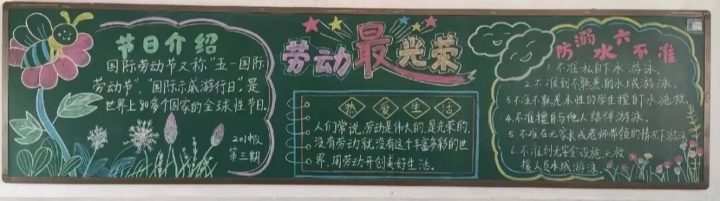 节日介绍
国际劳动节又称"五一国际
劳动节"、"国际示威游行日"是
世界上80多个国家的全球性节日。
第三期
劳动最光荣
热爱生活
人们常说,劳动是伟大的,是光荣的。
没有劳动就没有这个丰富多彩的世
界,用劳动开创美好生活。
防溺水六不准
1.不准私自下水游泳。
2.不准到不熟悉的水域游泳。
3.不准不熟悉水性的学生擅自下水施救。
4.不准擅自与他人结伴游泳。
5.不准在无家长或老师带领的情况下游泳。
6.不准到无安全设施、无救
援人员水域游泳。